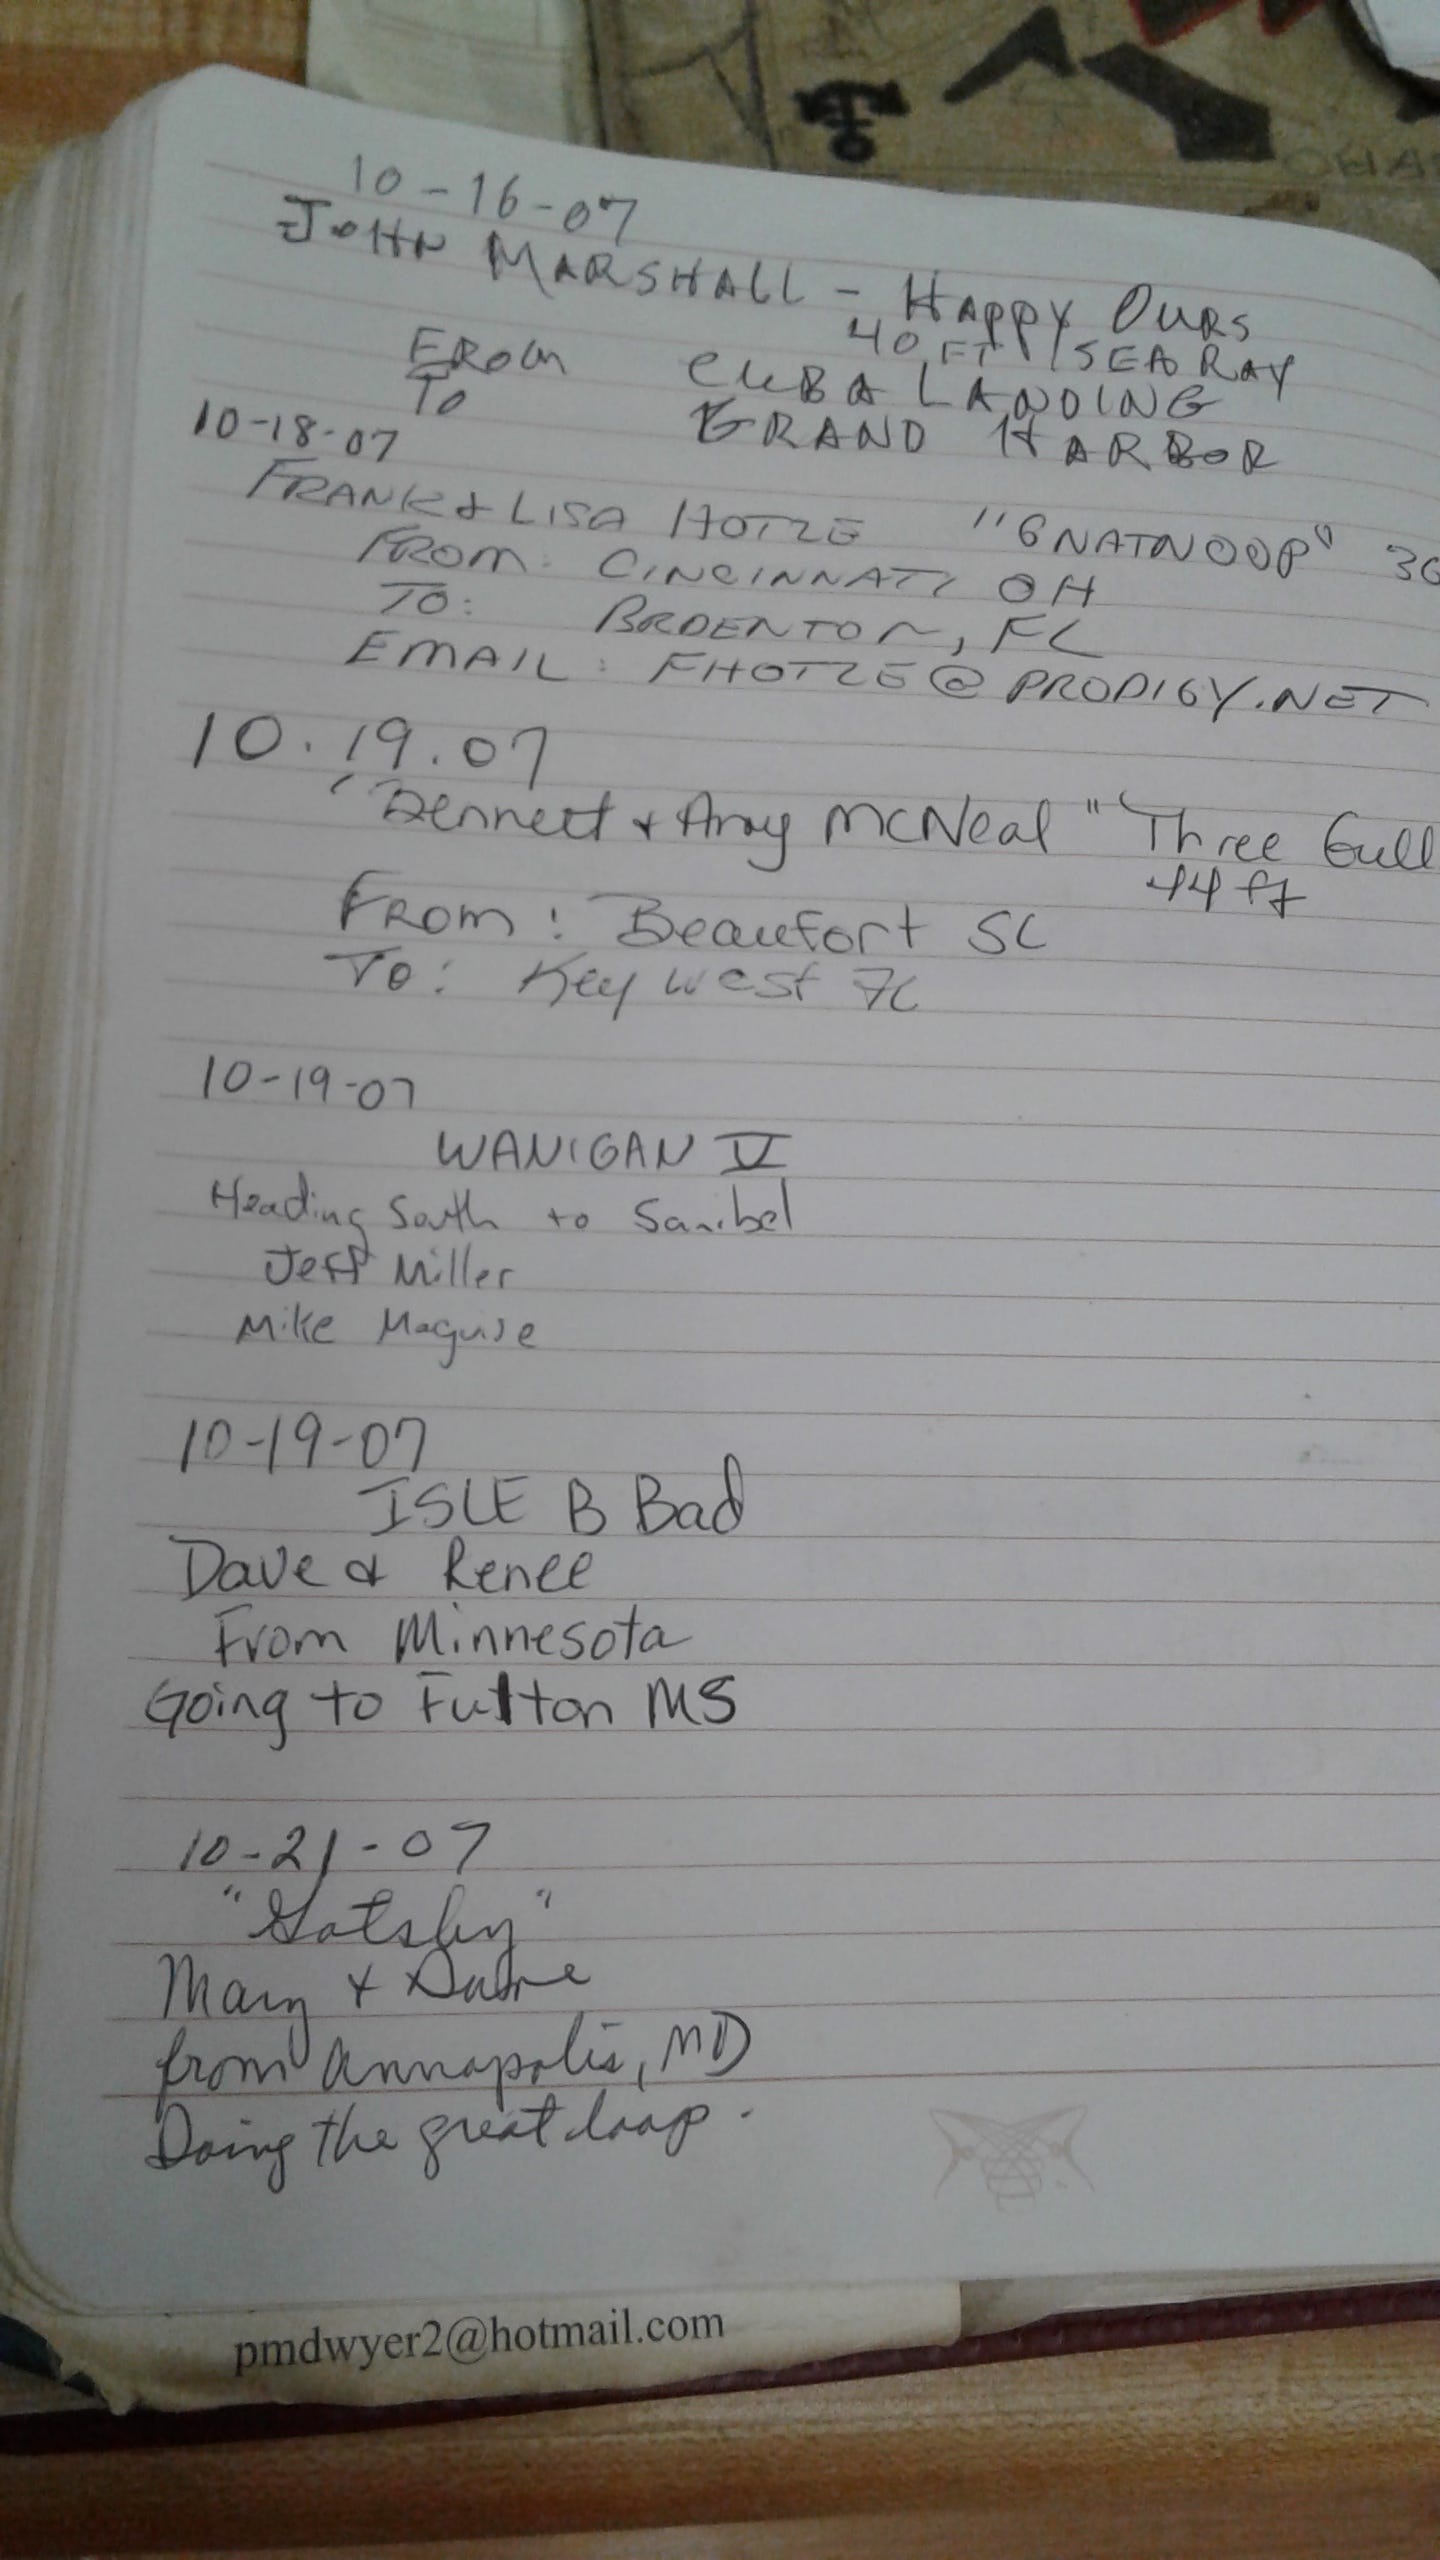 10-16-07
JOHN MARSHALL - HAPPY OURS
40 FT SEA RAY
FROM CUBA LANDING
TO GRAND HARBOR
10-18-07
FRANK & LISA HOTZE "GNATNOOP" 36
FROM: CINCINNATI OH
TO: BRDENTON, FL
EMAIL: FHOTZE@PRODIGY.NET
10.19.07
Bennett & Amy McNeal "Three Gull
44 ft
FROM: Beaufort SC
To: Key West FL
10-19-07
WANIGAN V
Heading South to Sanibel
Jeff Miller
Mike Maguire
10-19-07
ISLE B Bad
Dave & Renee
From Minnesota
Going to Fulton MS
10-21-07
"Gatsby"
Mary +
from Annapolis, MD
Doing the great loop.
pmdwyer2@hotmail.com